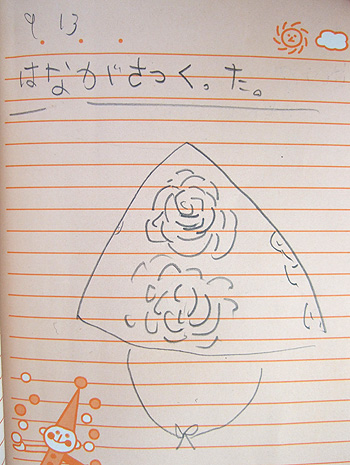 9.13.
はながさっく。た。